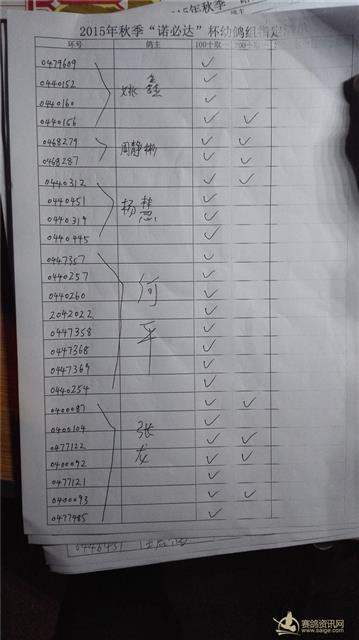 2015年秋季“诺必达”杯幼鸽组指定
环号 鸽主 100十取一 200十取一
0479609 ✓
0440152 ✓
姚鑫
0440160 ✓
0440156 ✓ ✓
0468279 ✓ ✓
周静彬
0468287 ✓ ✓
0440312 ✓ ✓
0440451 ✓
杨慧
0440319 ✓
0440445 ✓
0447357 ✓
0440257 ✓
何平
0440260 ✓
2042022 ✓
0447358 ✓
0447368 ✓
0447369 ✓
0440254 ✓
0400087 ✓ ✓
0400104 ✓
张友
0477122 ✓ ✓
0400092 ✓ ✓
0477121 ✓
0400093 ✓ ✓
0477485 ✓
0446451
赛鸽资讯网
www.saige.com